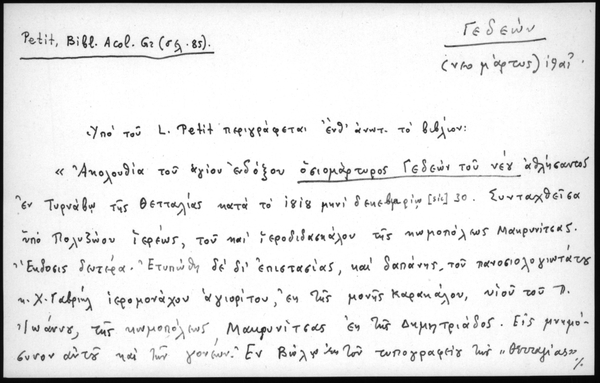 Petit, Bibl. Acol. Gr (σελ. 85).
Γεδεών
(νεομάρτυς)
Ὑπό τοῦ L. Petit περιγράφεται ἐνθ' ἀνωτ. τό βιβλίον:
« Ἀκολουθία τοῦ ἁγίου ἐνδόξου ὁσιομάρτυρος Γεδεών τοῦ νέου ἀθλήσαντος
ἐν Τυρνάβῳ τῆς Θετταλίας κατά τό 1818 μηνί δεκεμβρίῳ [sic] 30. Συνταχθεῖσα
ὑπό Πολυζώου ἱερέως, τοῦ καί ἱεροδιδασκάλου τῆς κωμοπόλεως Μακρυνίτσας.
Ἔκδοσις δευτέρα. Ἐτυπώθη δέ δι' ἐπιστασίας, καί δαπάνης, τοῦ πανοσιολογιωτάτου
κ. Χ. Γαβριήλ ἱερομονάχου ἁγιορίτου, ἐκ τῆς μονῆς Καρακάλου, υἱοῦ τοῦ Π.
Ἰωάννου, τῆς κωμοπόλεως Μακρυνίτσας ἐκ τῆς Δημητριάδος. Εἰς μνημό-
συνον αὐτοῦ καί τῶν γονέων. Ἐν Βόλῳ ἐκ τοῦ τυπογραφείου τῆς "Θετταλίας» %